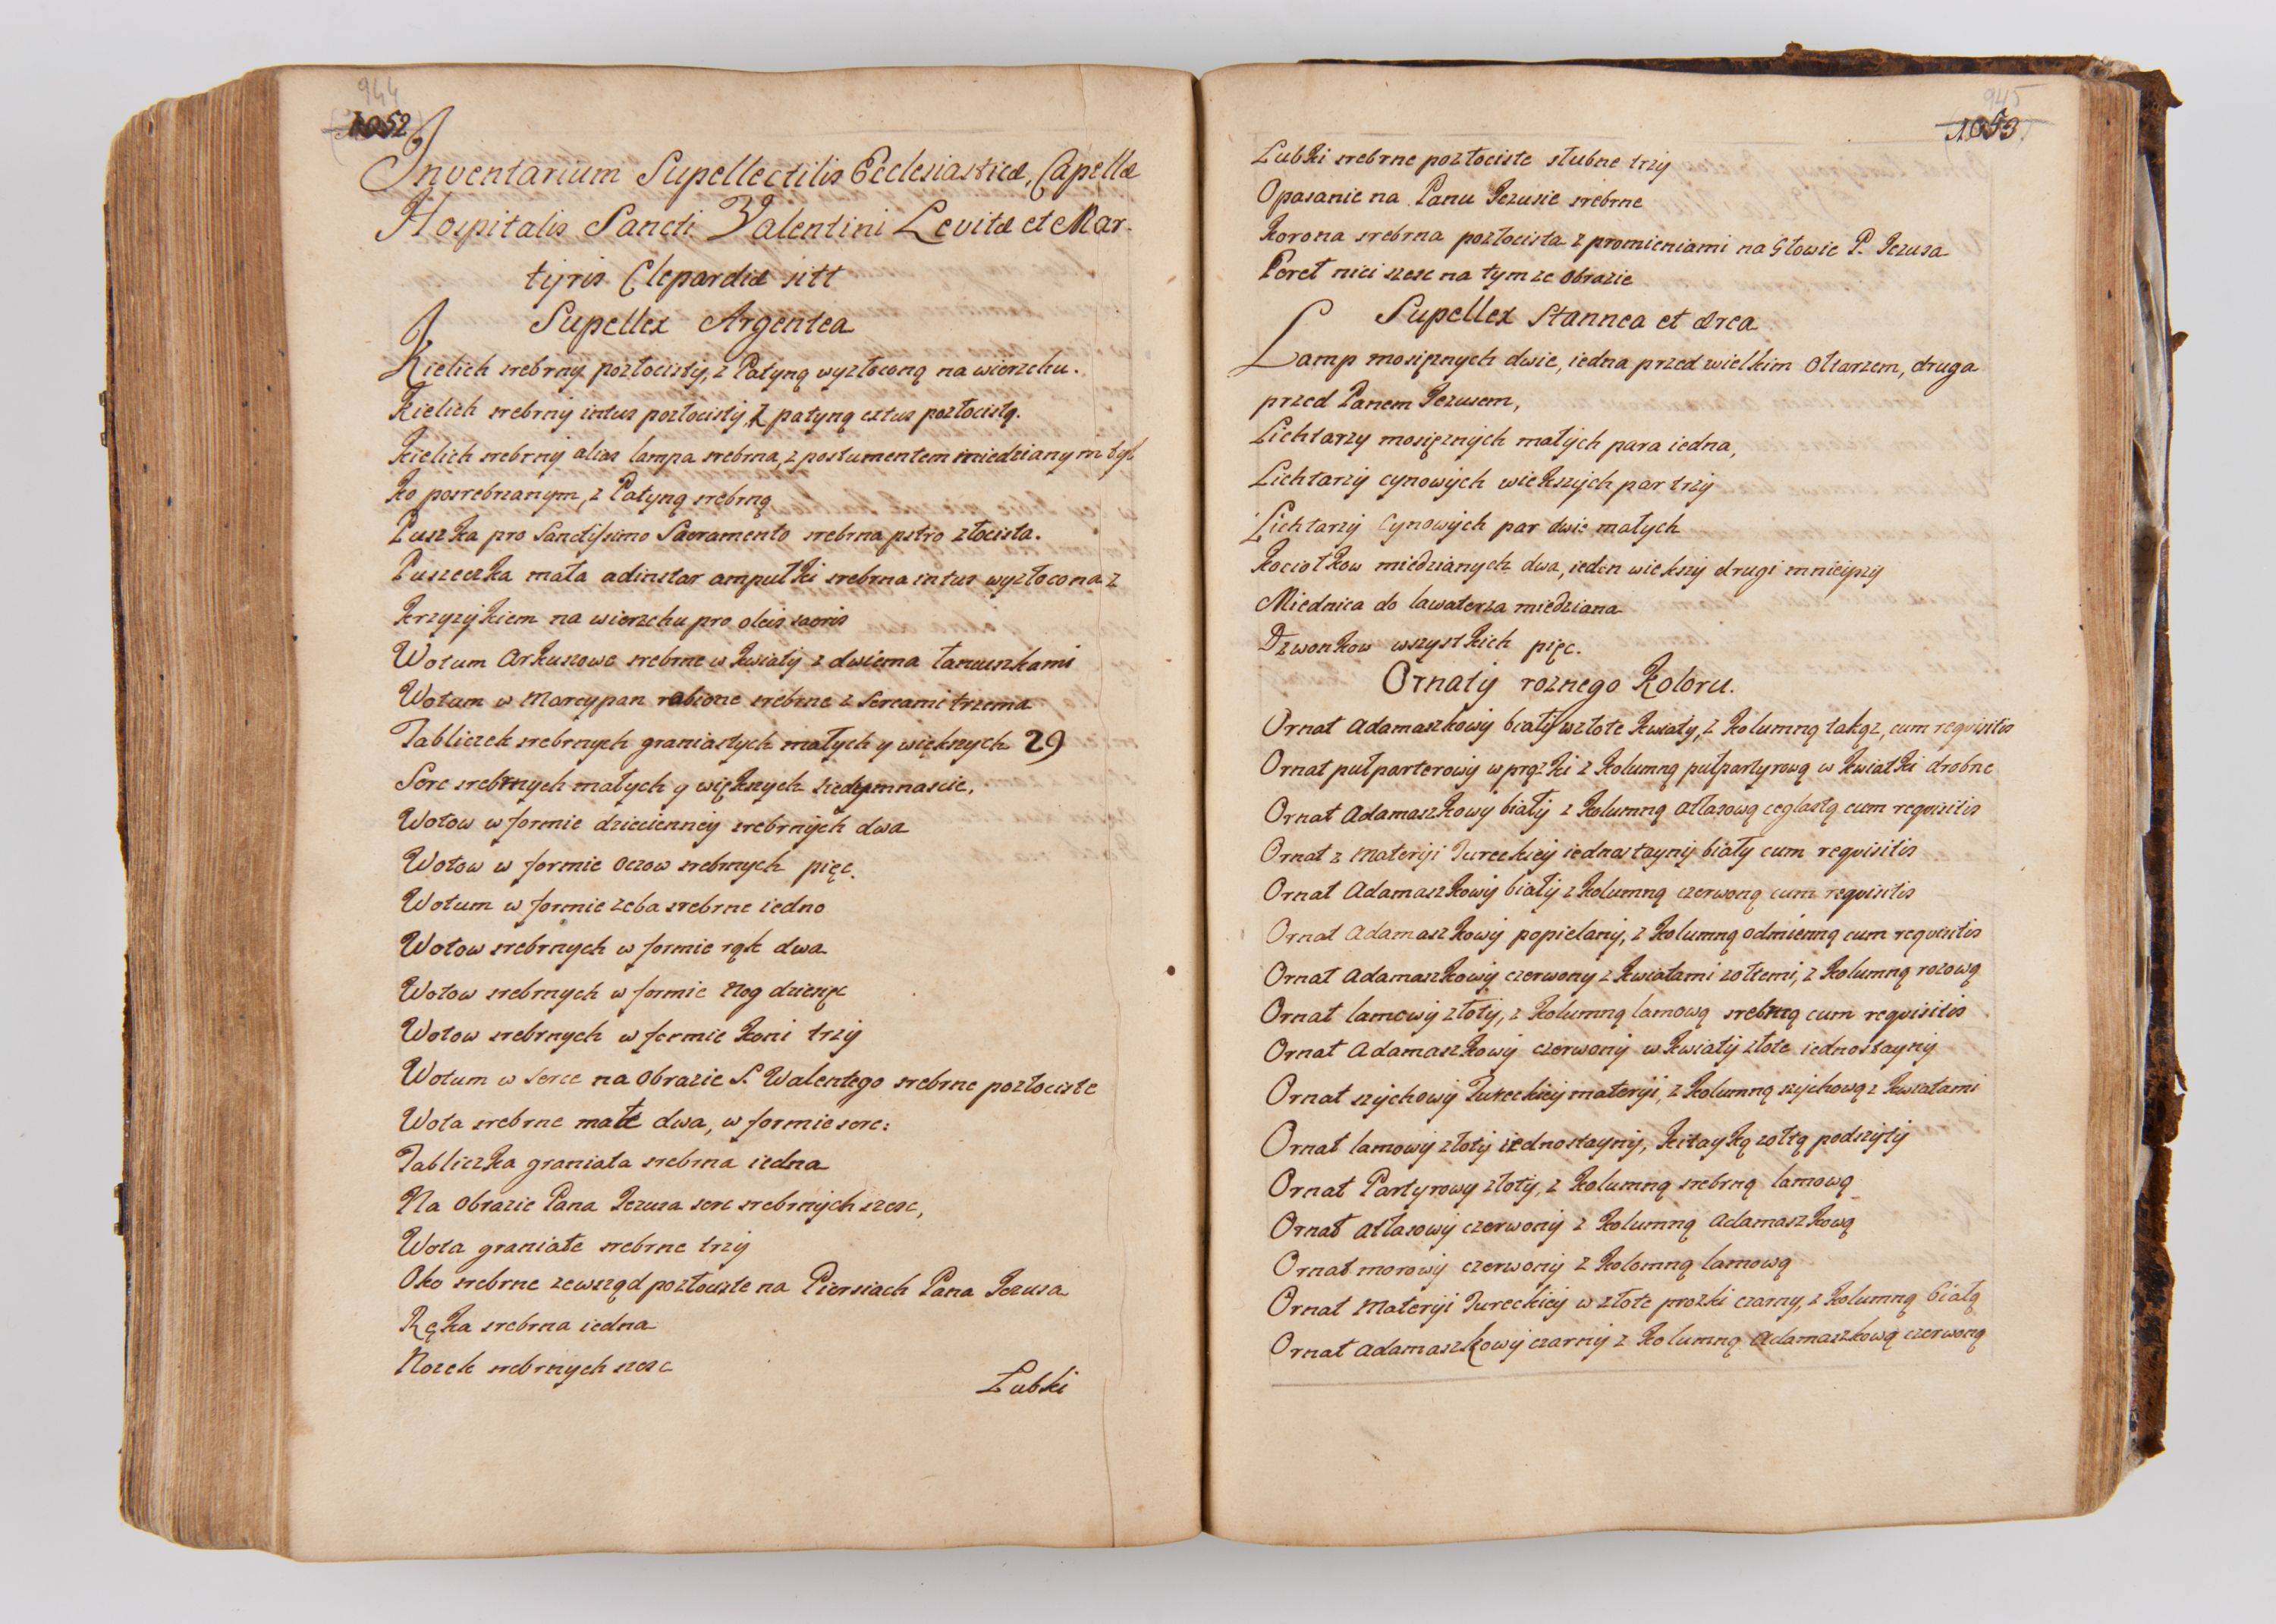 944
1052
Inventarium Supellectilis Ecclesiasticæ, Capellæ
Hospitalis Sancti Valentini Levitæ et Mar-
tyris Clepardiæ sitt
Supellex Argentea
Kielich srebrny pozłocisty, z Patyną wyzłoconą na wierzchu.
Kielich srebrny intus pozłocisty, z patyną extus pozłocistą.
Kielich srebrny alias lampa srebrna, z postumentem miedzianym tyl
ko posrebrzanym, z Patyną srebrną
Puszka pro Sanctissimo Sacramento srebrna pstro złocista.
Puszeczka mała adinstar ampułki srebrna intus wyzłocona z
krzyzykiem na wierzchu pro oleis sacris
Wotum Arkuszowe srebrne w kwiaty z dwiema łancuszkami
Wotum w Marcypan robione srebrne z sercami trzema
Tabliczek srebrnych graniastych małych y większych 29
Serc srebrnych małych y większych siedymnascie,
Wotow w formie dziecienney srebrnych dwa
Wotow w formie oczow srebrnych pięc.
Wotum w formie zeba srebrne iedno
Wotow srebrnych w formie rąk dwa
Wotow srebrnych w formie Nog dziesięc
Wotow srebrnych w formie koni trzy
Wotum w serce na Obrazie S. Walentego srebrne pozłociste
Wota srebrne małe dwa, w formie serc:
Tabliczka graniata srebrna iedna
Na Obrazie Pana Jezusa serc srebrnych szesc,
Wota graniate srebrne trzy
Oko srebrne zewsząd pozłociste na Piersiach Pana Jezusa
Ręka srebrna iedna
Nozek srebrnych szesc
Łubki
945
1053
Łubki srebrne pozłociste słubne trzy
Opasanie na Panu Jezusie srebrne
Korona srebrna pozłocista z promieniami na Głowie P. Jezusa
Pereł nici szesc na tymze Obrazie
Supellex Stannea et ærea
Lamp mosięznych dwie, iedna przed wielkim Ołtarzem, druga
przed Panem Jezusem,
Lichtarzy mosięznych małych para iedna,
Lichtarzy cynowych większych par trzy
Lichtarzy Cynowych par dwie małych
Kociołkow miedzianych dwa, ieden większy drugi mnieyszy
Miednica do lawaterza miedziana
Dzwonkow wszystkich pięc.
Ornaty roznego koloru.
Ornat Adamaszkowy biały w złote kwiaty, z kolumną takąz, cum requisitis
Ornat pułparterowy w prązki z kolumną pułpartyrową w kwiatki drobne
Ornat Adamaszkowy biały z kolumną atłasową ceglastą cum requisitis
Ornat z Materyi Tureckiey iednostayny biały cum requisitis
Ornat Adamaszkowy biały z kolumną czerwoną cum requisitis
Ornat Adamaszkowy popielany, z kolumną odmienną cum requisitis
Ornat Adamaszkowy czerwony z kwiatami zołtemi, z kolumną rozową
Ornat lamowy złoty, z kolumną lamową srebrną cum requisitis
Ornat Adamaszkowy czerwony w kwiaty złote iednostayny
Ornat szychowy Tureckiey materyi, z kolumną szychową z kwiatami
Ornat lamowy złoty iednostayny, kitayką zołtą podszyty
Ornat Partyrowy złoty, z kolumną srebrną lamową
Ornat atłasowy czerwony z kolumną Adamaszkową
Ornat morowy czerwony z kolomną lamową
Ornat Materyi Tureckiey w złote prozki czarny, z kolumną białą
Ornat Adamaszkowy czarny z kolumną Adamaszkową czerwoną